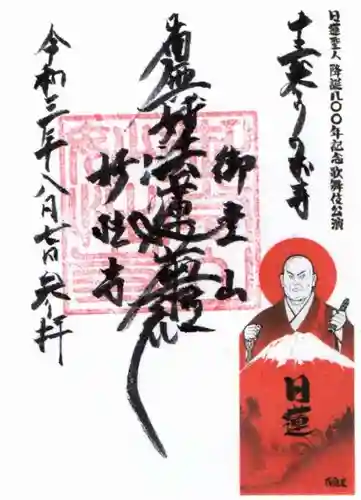 日蓮聖人 降誕八〇〇年記念歌舞伎公演
御霊山
南無妙法蓮華経
妙法寺
令和三年八月七日 奉拝
日蓮